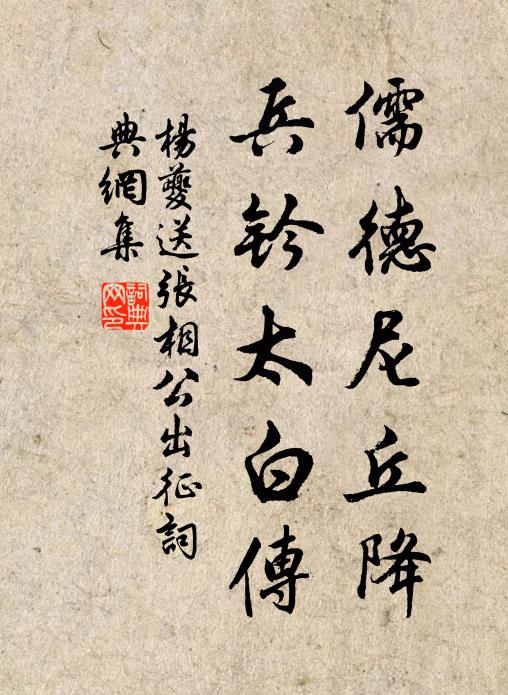 儒德尼丘降
兵鈐太白傳
楊夔送張相公出征詞
典網集
詞典網印